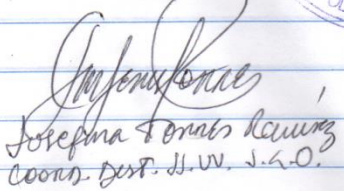 Josefina Torres Ramírez
Coord. Dist. JJ. VV. S.G.O.